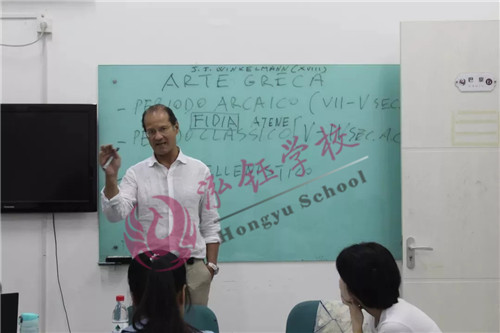 J.J. WINKELMANN (XVIII)
ARTE GRÊCA
- PERIODO ARCAICO (VII-V SEC.
FIDIA ATENE
- PERIODO CLASSICO V SEC. A.C
泓钰学校
Hongyu School